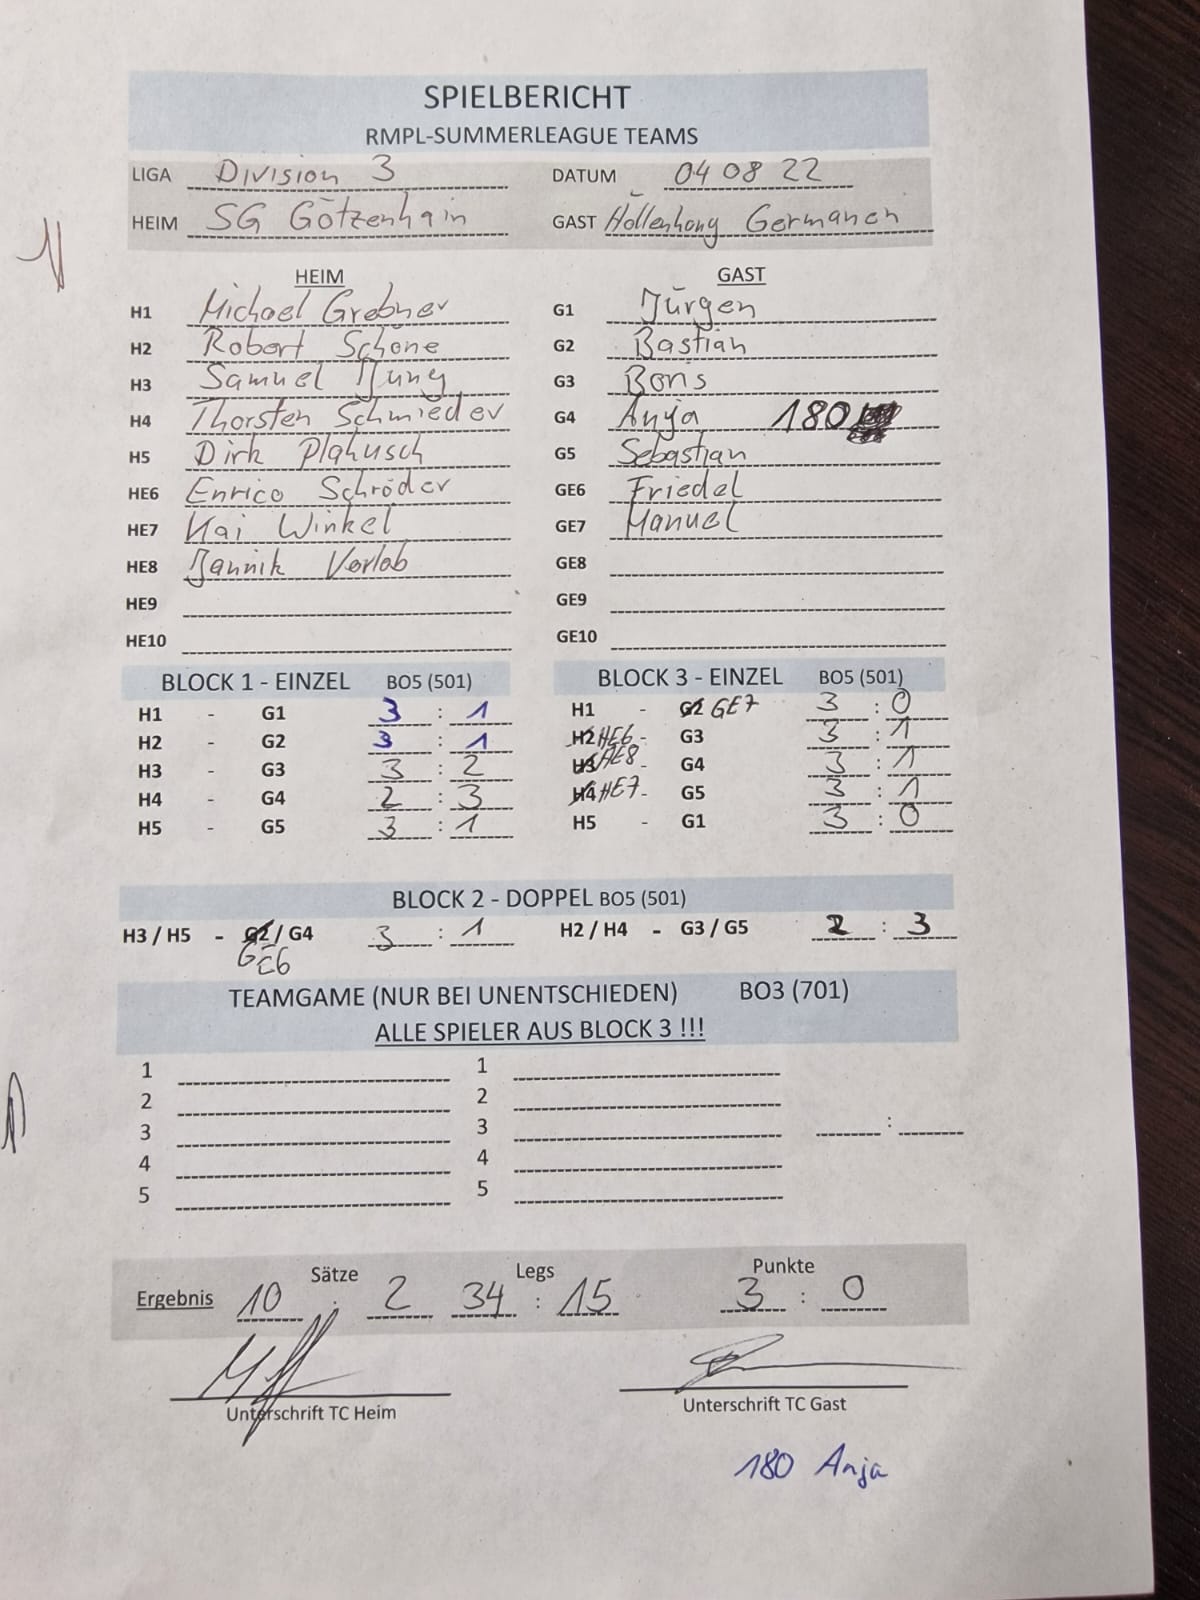 SPIELBERICHT
RMPL-SUMMERLEAGUE TEAMS
LIGA Division 3 DATUM 04 08 22
HEIM SG Götzenhain GAST Höllenhong Germanen
HEIM GAST
H1 Michael Grebner G1 Jürgen
H2 Robert Schöne G2 Bastian
H3 Samuel Jung G3 Boris
H4 Thorsten Schmieder G4 Anja 180
H5 Dirk Plahusch G5 Sebastian
HE6 Enrico Schröder GE6 Friedel
HE7 Kai Winkel GE7 Manuel
HE8 Jannik Verlob GE8
HE9 GE9
HE10 GE10
BLOCK 1 - EINZEL BO5 (501) BLOCK 3 - EINZEL BO5 (501)
H1 - G1 3 : 1 H1 - G2 GE7 3 : 0
H2 - G2 3 : 1 H2 HE6 - G3 3 : 1
H3 - G3 3 : 2 H3 HE8 - G4 3 : 1
H4 - G4 2 : 3 H4 HE7 - G5 3 : 1
H5 - G5 3 : 1 H5 - G1 3 : 0
BLOCK 2 - DOPPEL BO5 (501)
H3 / H5 - G2 / G4 3 : 1 H2 / H4 - G3 / G5 2 : 3
GE6
TEAMGAME (NUR BEI UNENTSCHIEDEN) BO3 (701)
ALLE SPIELER AUS BLOCK 3 !!!
1 1
2 2
3 3 :
4 4
5 5
Sätze Legs Punkte
Ergebnis 10 : 2 34 : 15 3 : 0
Unterschrift TC Heim Unterschrift TC Gast
180 Anja